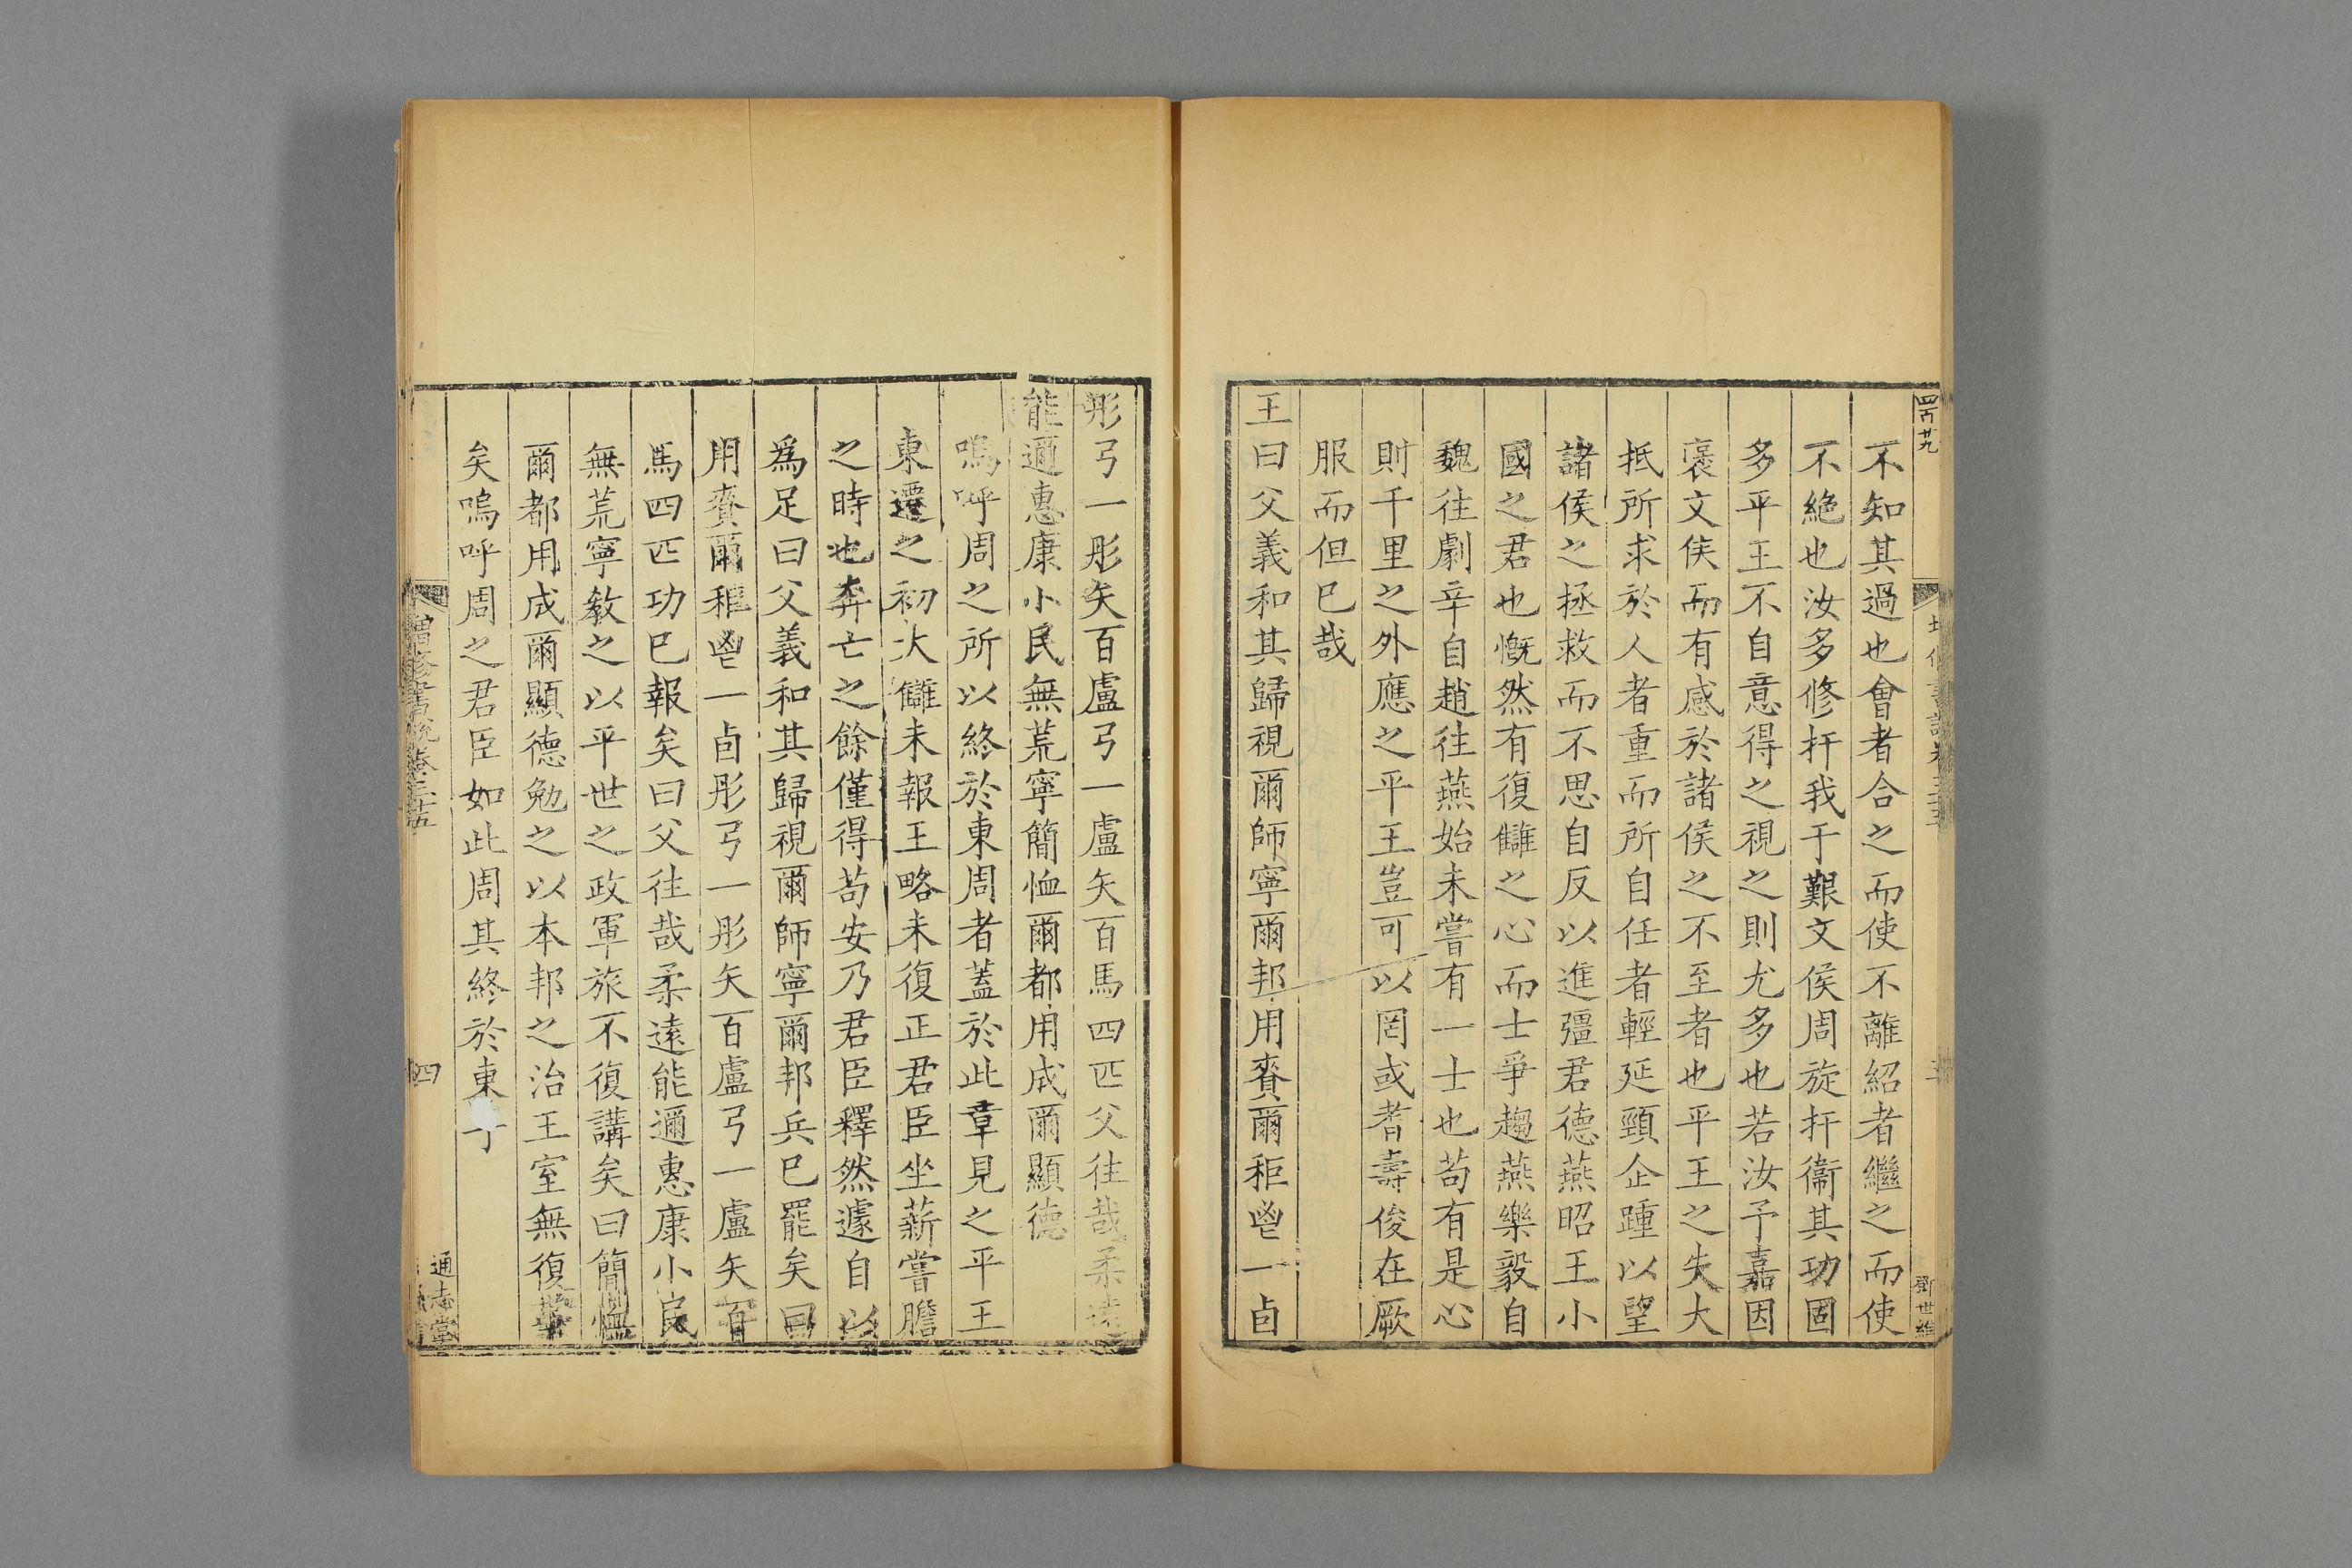 四百廿九
鄧世維
不知其過也會者合之而使不離紹者繼之而使
不絶也汝多修扞我于艱文侯周旋扞衞其功固
多平王不自意得之視之則尤多也若汝予嘉因
襃文侯而有感於諸侯之不至者也平王之失大
抵所求於人者重而所自任者輕延頸企踵以望
諸侯之拯救而不思自反以進彊君德燕昭王小
國之君也慨然有復讎之心而士爭趨燕樂毅自
魏往劇辛自趙往燕始未嘗有一士也苟有是心
則千里之外應之平王豈可以罔或耆壽俊在厥
服而但已哉
王曰父義和其歸視爾師寧爾邦用賚爾秬鬯一卣
彤弓一彤矢百盧弓一盧矢百馬四匹父往哉柔遠
能邇惠康小民無荒寧簡恤爾都用成爾顯德
嗚呼周之所以終於東周者蓋於此章見之平王
東遷之初大讎未報王略未復正君臣坐薪嘗膽
之時也奔亡之餘僅得苟安乃君臣釋然遽自以
爲足曰父義和其歸視爾師寧爾邦兵已罷矣曰
用賚爾秬鬯一卣彤弓一彤矢百盧弓一盧矢百
馬四匹功已報矣曰父往哉柔遠能邇惠康小民
無荒寧敎之以平世之政軍旅不復講矣曰簡恤
爾都用成爾顯德勉之以本邦之治王室無復事
矣嗚呼周之君臣如此周其終於東乎
增修書說卷三十五
四
通志堂